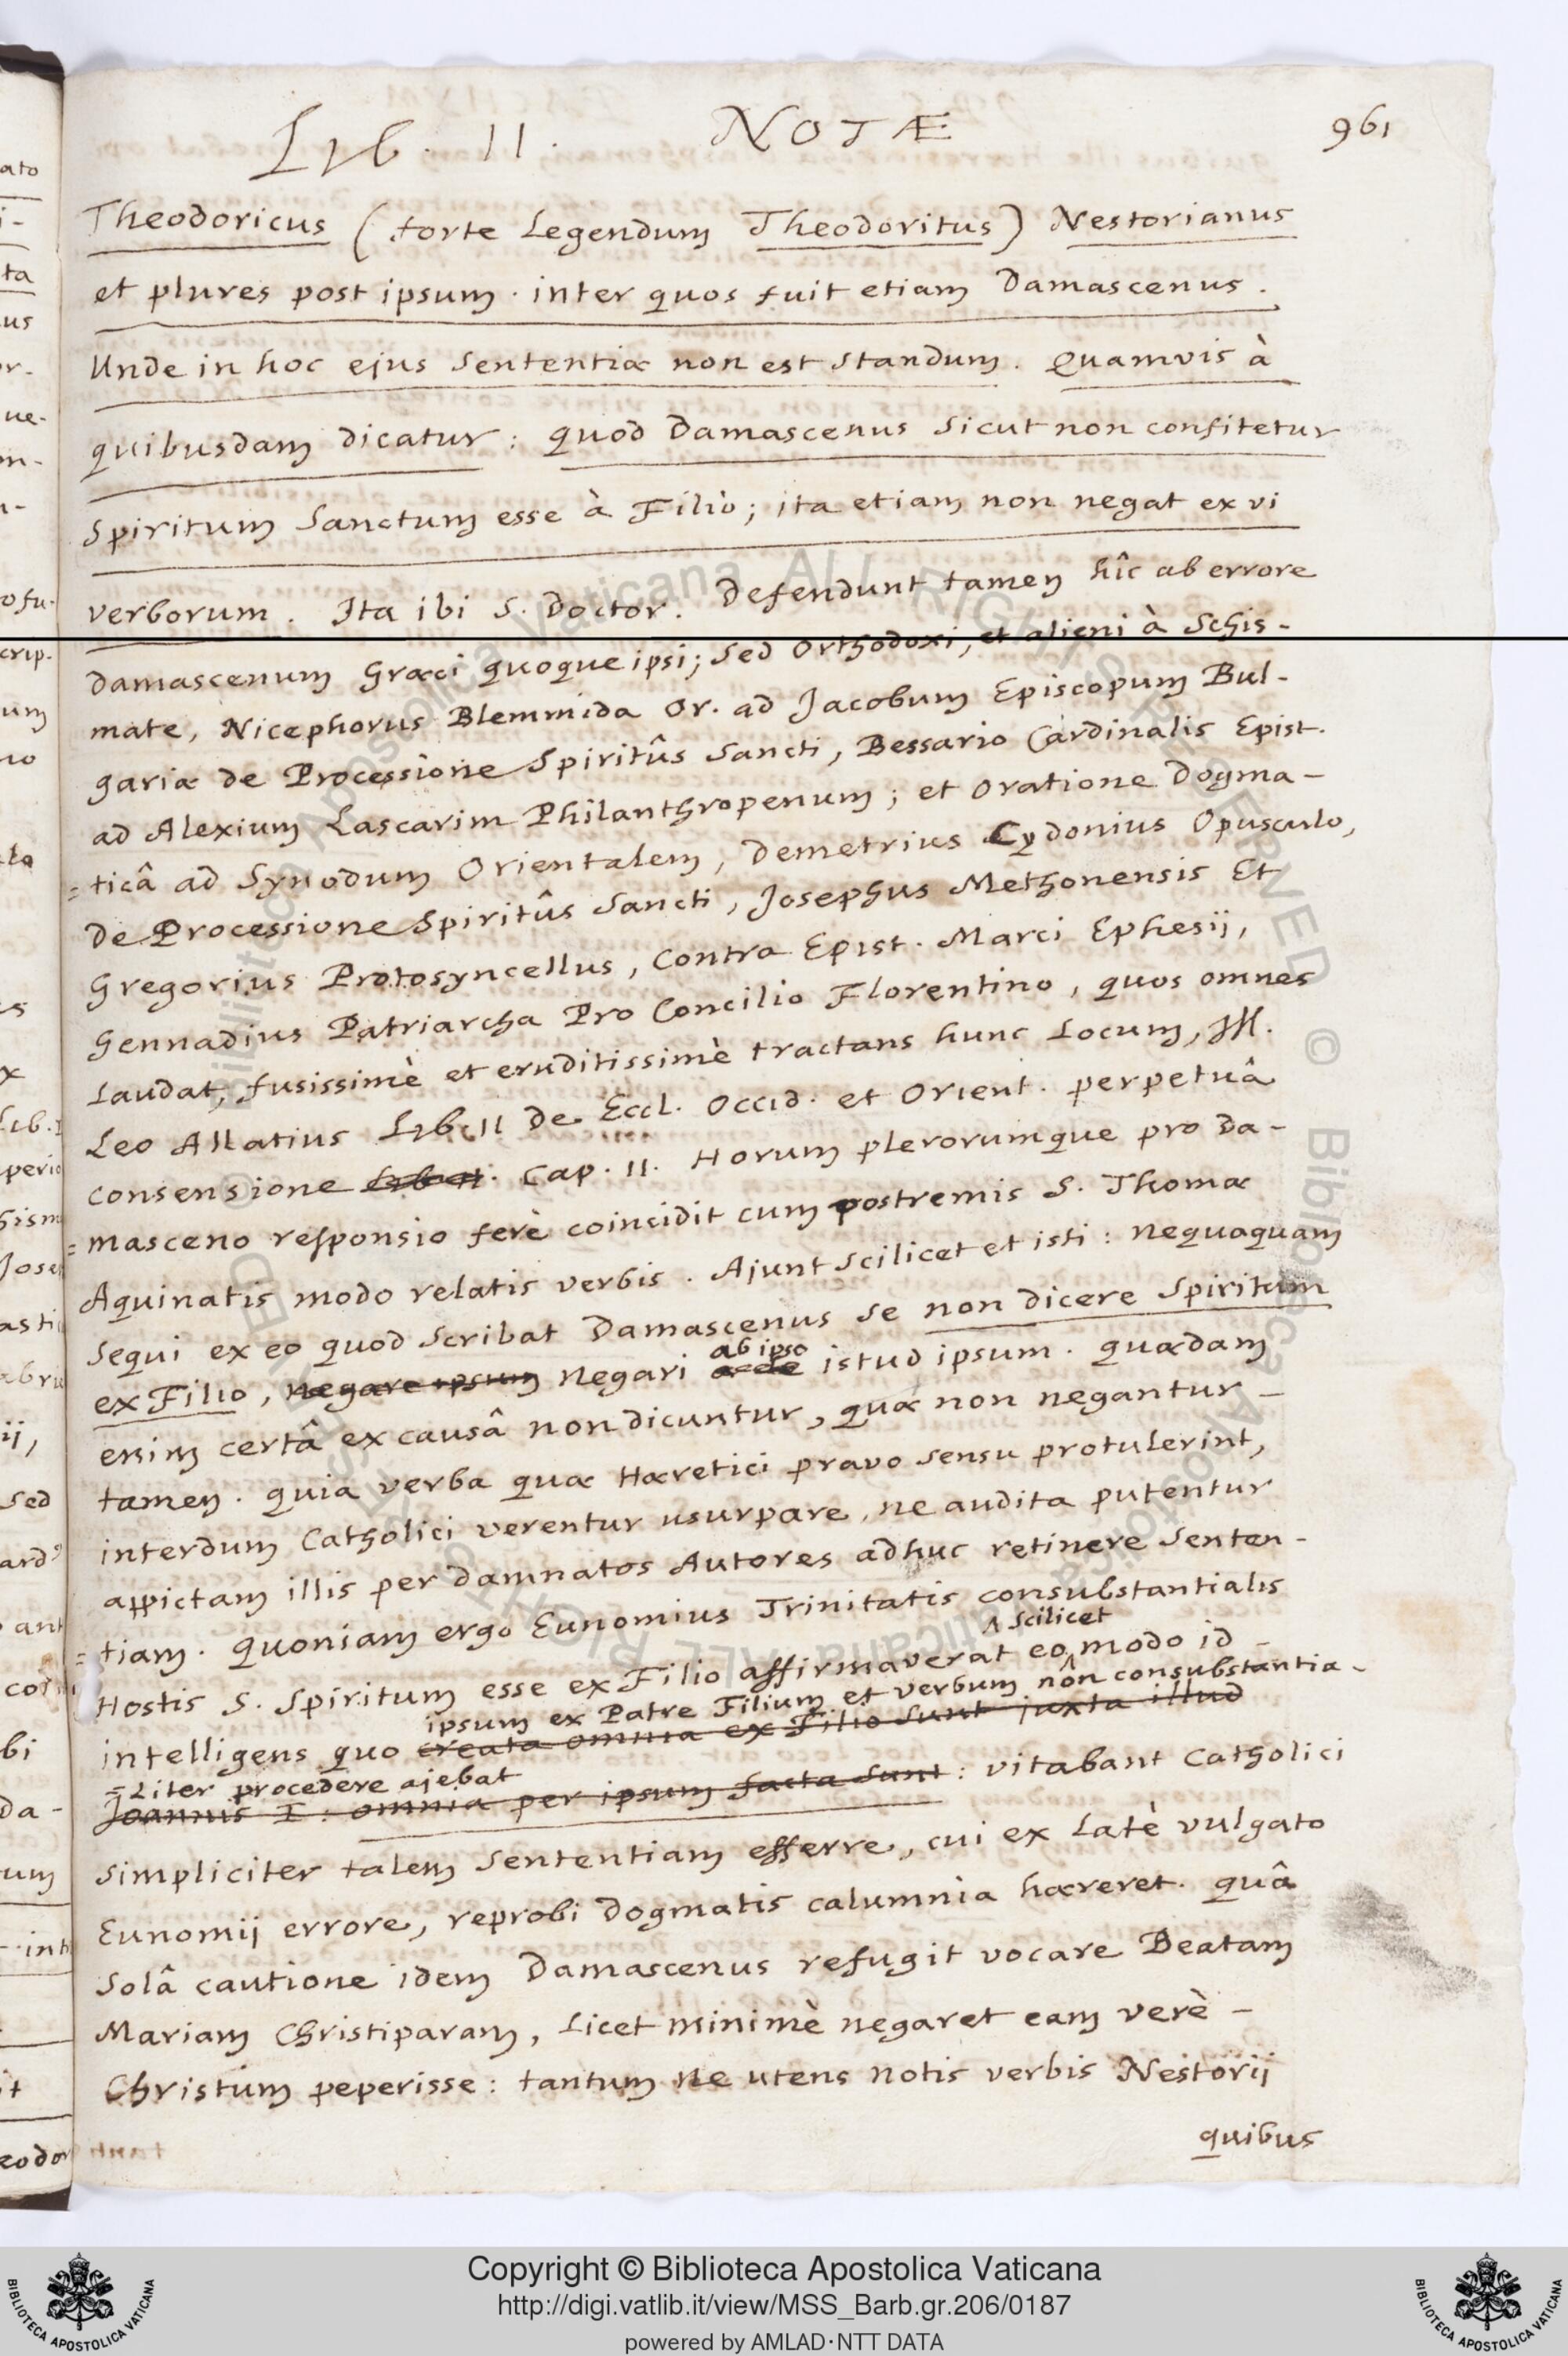 Lib. II. NOTÆ 961
Theodoricus (forte Legendum Theodoritus) Nestorianus
et plures post ipsum. inter quos fuit etiam Damascenus.
Unde in hoc ejus Sententiæ non est standum. Quamvis à
quibusdam dicatur: quod Damascenus sicut non confitetur
Spiritum Sanctum esse à Filio; ita etiam non negat ex vi
verborum. Ita ibi S. Doctor. Defendunt tamen hîc ab errore
Damascenum Græci quoque ipsi; sed Orthodoxi, et alieni à Schis-
mate, Nicephorus Blemmida Or. ad Jacobum Episcopum Bul-
gariæ de Processione Spiritûs Sancti, Bessario Cardinalis Epist.
ad Alexium Lascarim Philanthropenum; et Oratione Dogma-
=ticâ ad Synodum Orientalem, Demetrius Cydonius Opusculo,
de Processione Spiritûs Sancti, Josephus Methonensis Et
Gregorius Protosyncellus, Contra Epist. Marci Ephesij,
Gennadius Patriarcha Pro Concilio Florentino, quos omnes
Laudat, fusissimè et eruditissimè tractans hunc Locum,
Leo Allatius Lib. II De Eccl. Occid. et Orient. perpetuâ
consensione Lib. II. Cap. II. Horum plerorumque pro Da-
=masceno responsio ferè coincidit cum postremis S. Thomæ
Aquinatis modo relatis verbis. Ajunt scilicet et isti: nequaquam
sequi ex eo quod scribat Damascenus se non dicere Spiritum
ab ipso
ex Filio, negare ipsum negari istud ipsum. quædam
enim certâ ex causâ non dicuntur, quæ non negantur -
tamen. quia verba quæ Hæretici pravo sensu protulerint,
interdum Catholici verentur usurpare, ne audita putentur
appictam illis per damnatos Autores adhuc retinere senten-
=tiam. quoniam ergo Eunomius Trinitatis consubstantialis
scilicet
Hostis S. Spiritum esse ex Filio affirmaverat eo modo id -
ipsum ex Patre Filium et verbum nôn consubstantia-
intelligens quo creata omnia ex Filio sunt juxta illud
=Liter procedere ajebat
Joannis I: omnia per ipsum facta sunt: vitabant Catholici
simpliciter talem sententiam efferre, cui ex latè vulgato
Eunomij errore, reprobi dogmatis calumnia hæreret. quâ
solâ cautione idem Damascenus refugit vocare Beatam
Mariam Christiparam, licet minimè negaret eam verè -
Christum peperisse: tantum ne utens notis verbis Nestorij
quibus
Copyright © Biblioteca Apostolica Vaticana
http://digi.vatlib.it/view/MSS_Barb.gr.206/0187
powered by AMLAD·NTT DATA